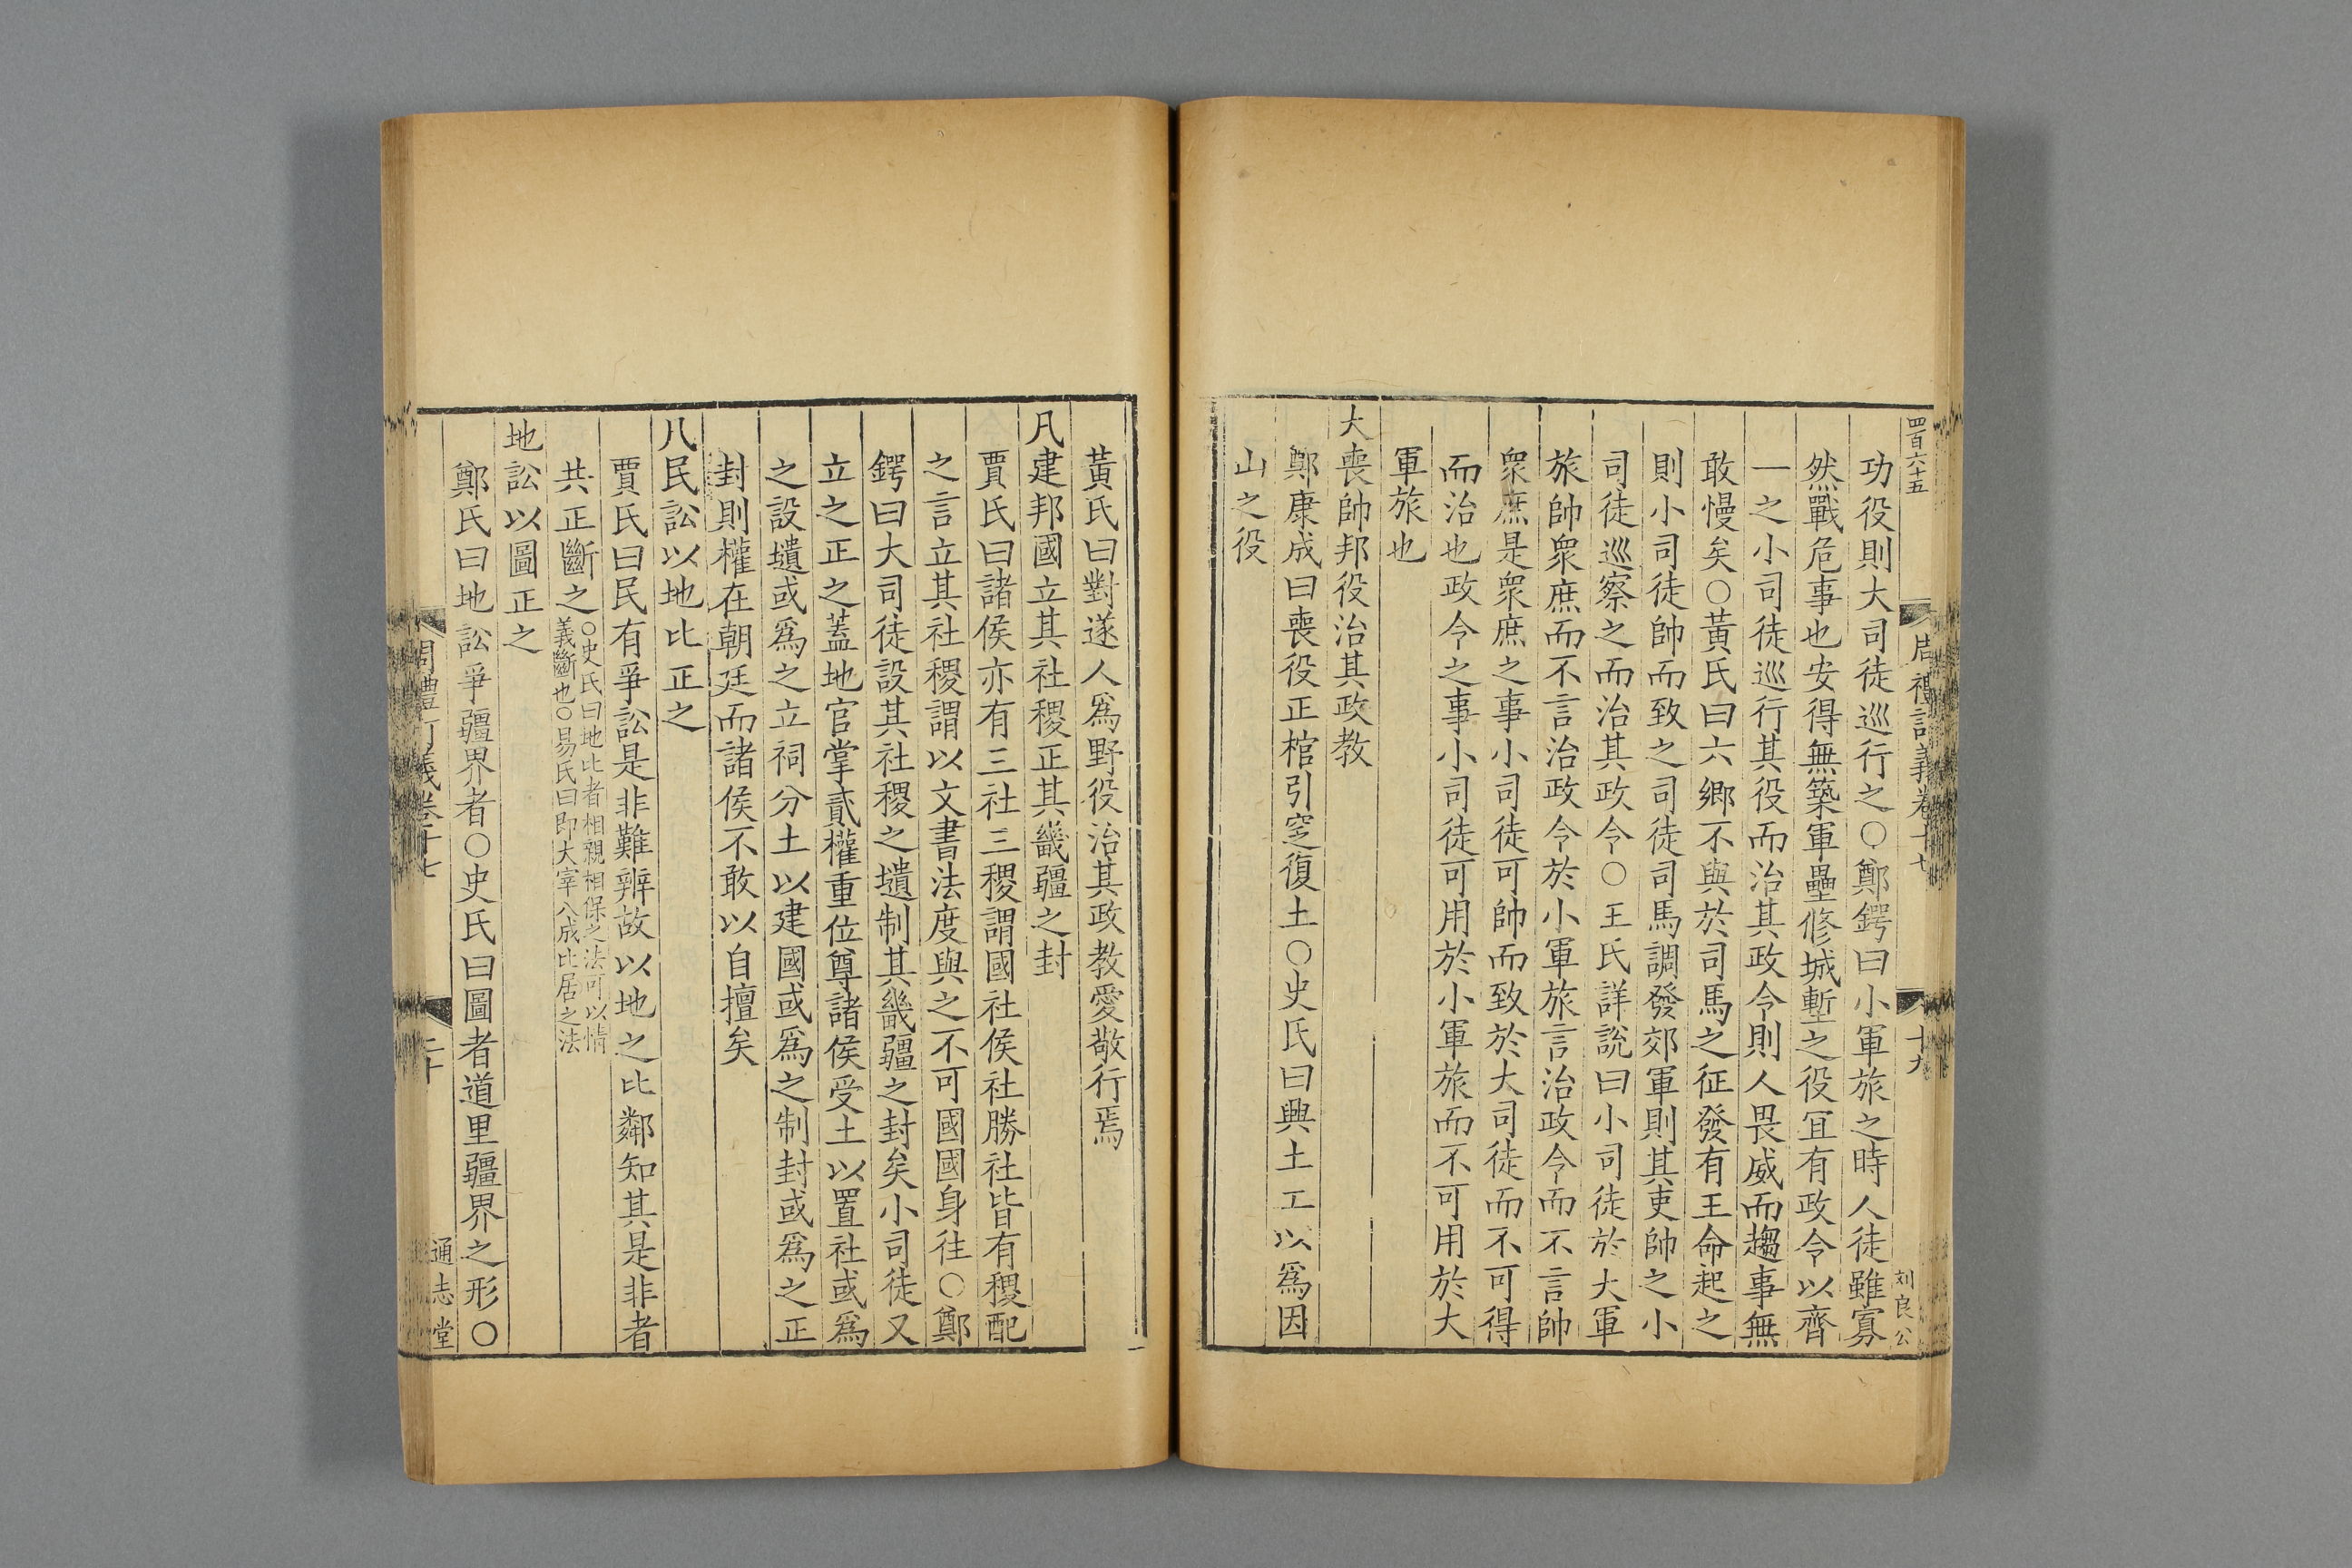 四百六十五
周禮訂義卷十七
十九
刘良公
功役則大司徒巡行之○鄭鍔曰小軍旅之時人徒雖寡
然戰危事也安得無築軍壘修城塹之役宜有政令以齊
一之小司徒巡行其役而治其政令則人畏威而趨事無
敢慢矣○黃氏曰六鄉不與於司馬之征發有王命起之
則小司徒帥而致之司徒司馬調發郊軍則其吏帥之小
司徒巡察之而治其政令○王氏詳說曰小司徒於大軍
旅帥眾庶而不言治政令於小軍旅言治政令而不言帥
眾庶是眾庶之事小司徒可帥而致於大司徒而不可得
而治也政令之事小司徒可用於小軍旅而不可用於大
軍旅也
大喪帥邦役治其政教
鄭康成曰喪役正棺引窆復土○史氏曰興土工以為因
山之役
黃氏曰對遂人為野役治其政教愛敬行焉
凡建邦國立其社稷正其畿疆之封
賈氏曰諸侯亦有三社三稷謂國社侯社勝社皆有稷配
之言立其社稷謂以文書法度與之不可國國身往○鄭
鍔曰大司徒設其社稷之壝制其畿疆之封矣小司徒又
立之正之蓋地官掌貳權重位尊諸侯受土以置社或為
之設壝或為之立祠分土以建國或為之制封或為之正
封則權在朝廷而諸侯不敢以自擅矣
凡民訟以地比正之
賈氏曰民有爭訟是非難辨故以地之比鄰知其是非者
共正斷之○史氏曰地比者相親相保之法可以情
義斷也○易氏曰即大宰八成比居之法
地訟以圖正之
鄭氏曰地訟爭疆界者○史氏曰圖者道里疆界之形○
周禮訂義卷十七
二十
通志堂